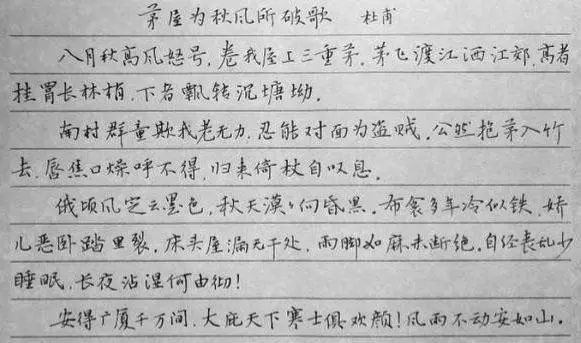 茅屋为秋风所破歌 杜甫
八月秋高风怒号,卷我屋上三重茅.茅飞渡江洒江郊,高者
挂罥长林梢,下者飘转沉塘坳.
南村群童欺我老无力,忍能对面为盗贼.公然抱茅入竹
去,唇焦口燥呼不得,归来倚杖自叹息.
俄顷风定云墨色,秋天漠々向昏黑.布衾多年冷似铁,娇
儿恶卧踏里裂.床头屋漏无干处,雨脚如麻未断绝.自经丧乱少
睡眠,长夜沾湿何由彻!
安得广厦千万间,大庇天下寒士俱欢颜!风雨不动安如山.